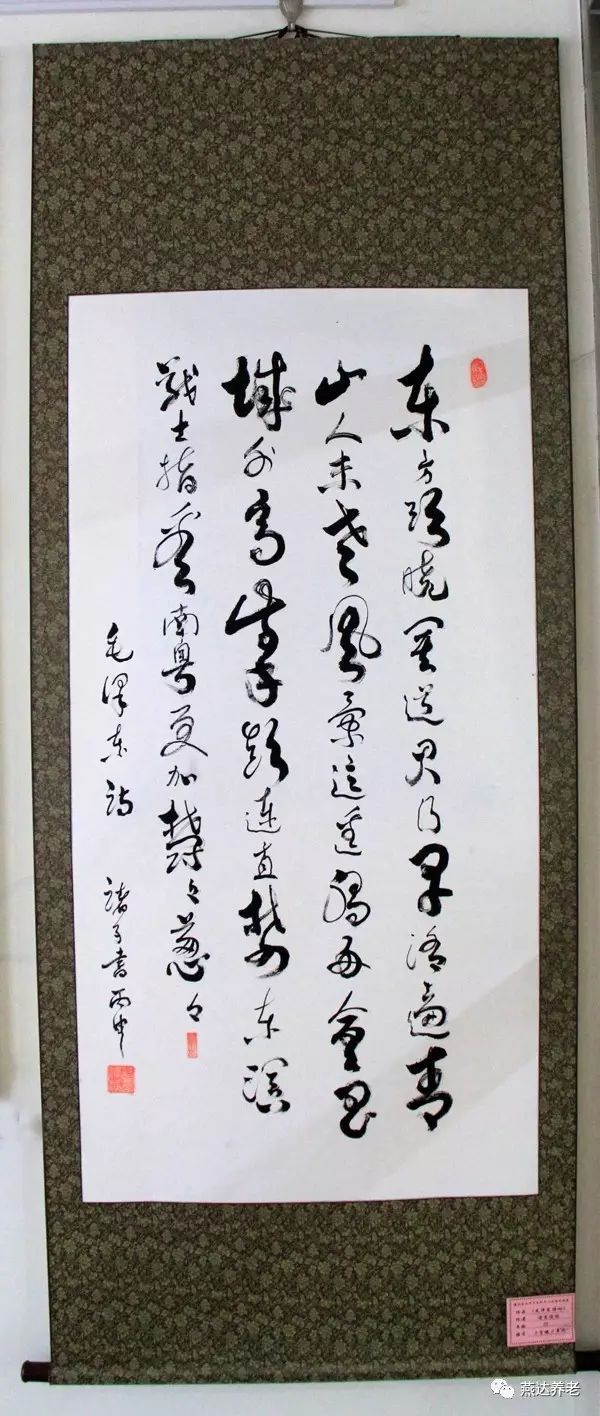 东方欲晓莫道君行早踏遍青
山人未老风景这边独好会昌
城外高峰颠连直接东溟
战士指看南粤更加郁々葱々
毛泽东诗 诸子书 丙申
作品
作者
年龄
燕达养老